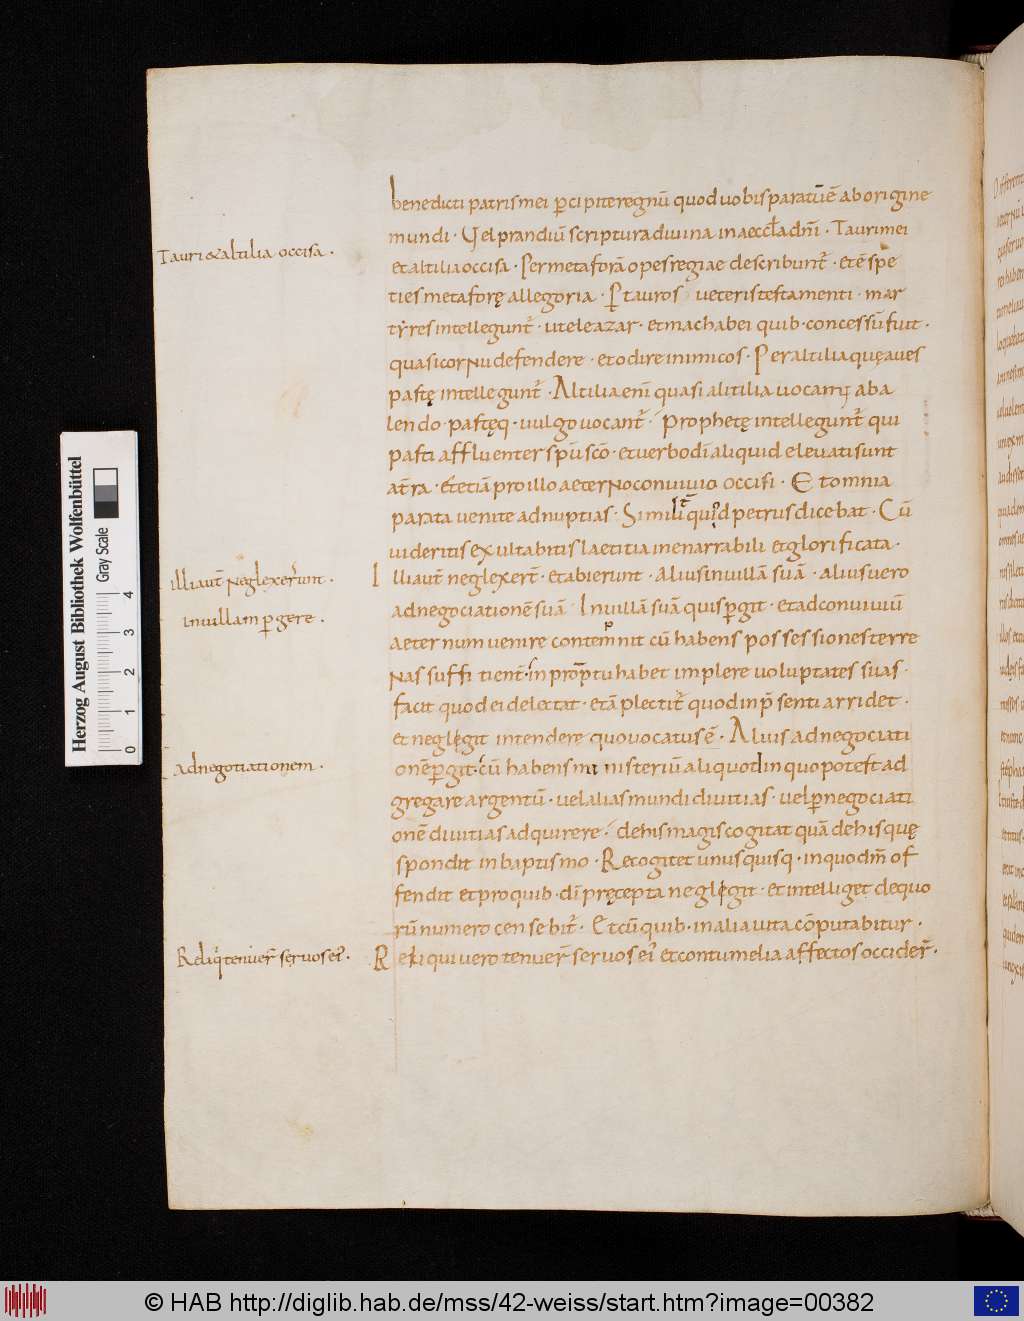 benedicti patris mei p̄cipite regnū quod uobis paratū ē ab origine
mundi · Vel prandiū scriptura diuina in aeccl̄a dn̄i · Tauri mei
Tauri & altilia occisa .
et altilia occisa · Per metaforā opes regiae describunt̄ · et ē spe
ties metaforę allegoria · P̄ tauros ueteris testamenti · mar
tyres intellegunt̄ · ut eleazar · et machabei quib· concessū fuit ·
quasi cornu defendere · et odire inimicos · Per altilia quę aues
pastę intellegunt̄ · Altilia eni quasi alitilia uocamꝰ ab a
lendo · pastęq· uulgo uocant̄ · Prophetę intellegunt̄ qui
pasti affluenter sp̄u sc̄o · et uerbo dī aliquid eleuati sunt
at̄ra · et etiā pro illo aeterno conuiuio occisi · Et omnia
parata uenite ad nuptias · Simili quid petrus dicebat · Cū
uideritis exultabitis laetitia inenarrabili et glorificata ·
illi aut̄ neglexer̄unt ·
Illi aut̄ neglexert̄ · et abierunt · Alius in uillā suā · alius uero
in uillam p̄gere ·
ad negociationē suā · In uillā suā quis p̄git · et ad conuiuiū
aeternum uenire contemnit cū habens possessiones terre
nas suffitient· in promptu habet implere uoluptates suas ·
facit quod ei delectat · etā plectit̄ quod in p̄senti arridet ·
et neglęgit intendere quo uocatus ē · Alius ad negociati
ad negotiationem ·
onē p̄git· cū habens ministeriū aliquod in quo potest ad
gregare argentū · uel alias mundi diuitias · uel p̄ negociati
onē diuitias adquirere · de his magis cogitat quā de his quę
spondit in baptismo · Recogitet unusquisq· in quo dm̄ of
fendit et pro quib· dī pręcepta neglegit · et intelliget de quo
rū numero censebit̄ · Et cū quib· in alia uita cōputabitur ·
Reliq̄ tenuer̄ seruos ei ·
Reliqui uero tenuer̄ seruos ei et contumelia affectos occider̄ ·
Herzog August Bibliothek Wolfenbüttel
Gray Scale
0 1 2 3 4
© HAB http://diglib.hab.de/mss/42-weiss/start.htm?image=00382